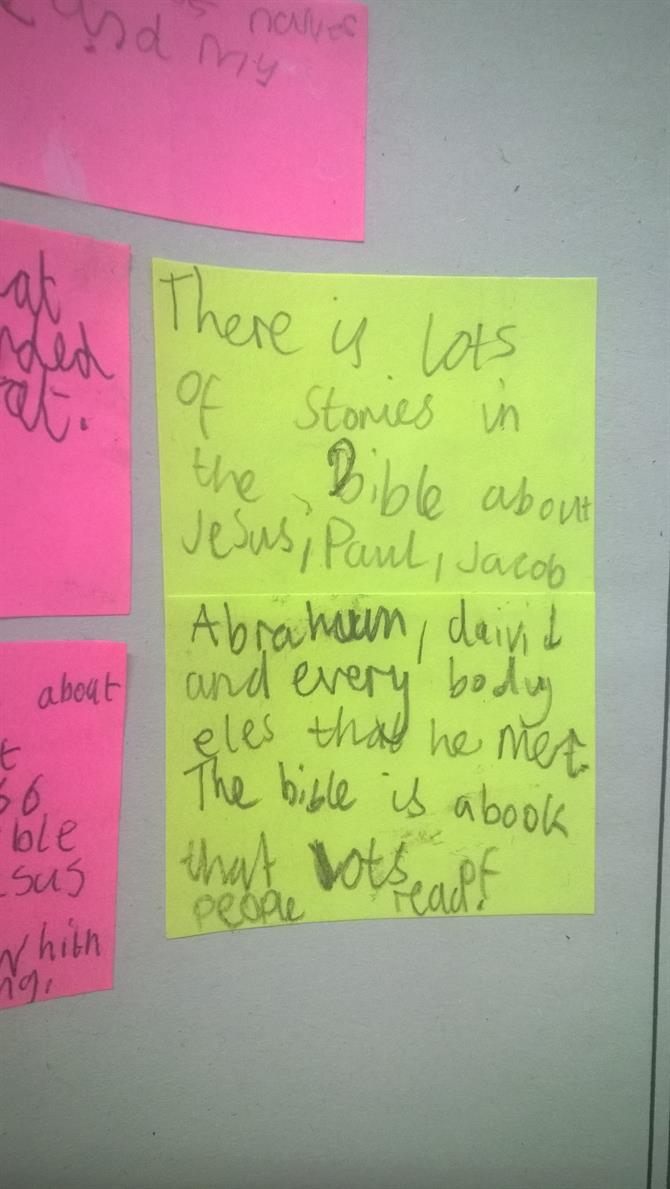 names
and my
at
nded
at.
There is lots
of stories in
the Bible about
Jesus, Paul, Jacob
Abraham, daivid
and every body
eles that he met.
The bible is abook
that lots of
people read.
about
t
66
ble
sus
whith
ng.